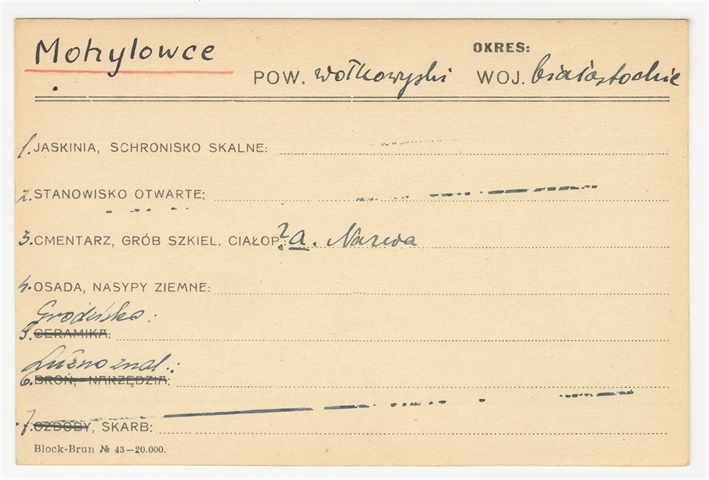 Mohylowce
OKRES:
POW. wołkowyski WOJ. białostockie
1. JASKINIA, SCHRONISKO SKALNE:
2. STANOWISKO OTWARTE:
3. CMENTARZ, GRÓB SZKIEL. CIAŁOP.: ? a. Narwa
4. OSADA, NASYPY ZIEMNE:
Grodziska:
5. CERAMIKA:
Luźno znal.:
6. BROŃ, NARZĘDZIA:
7. OZDOBY, SKARB:
Block-Brun № 43—20.000.